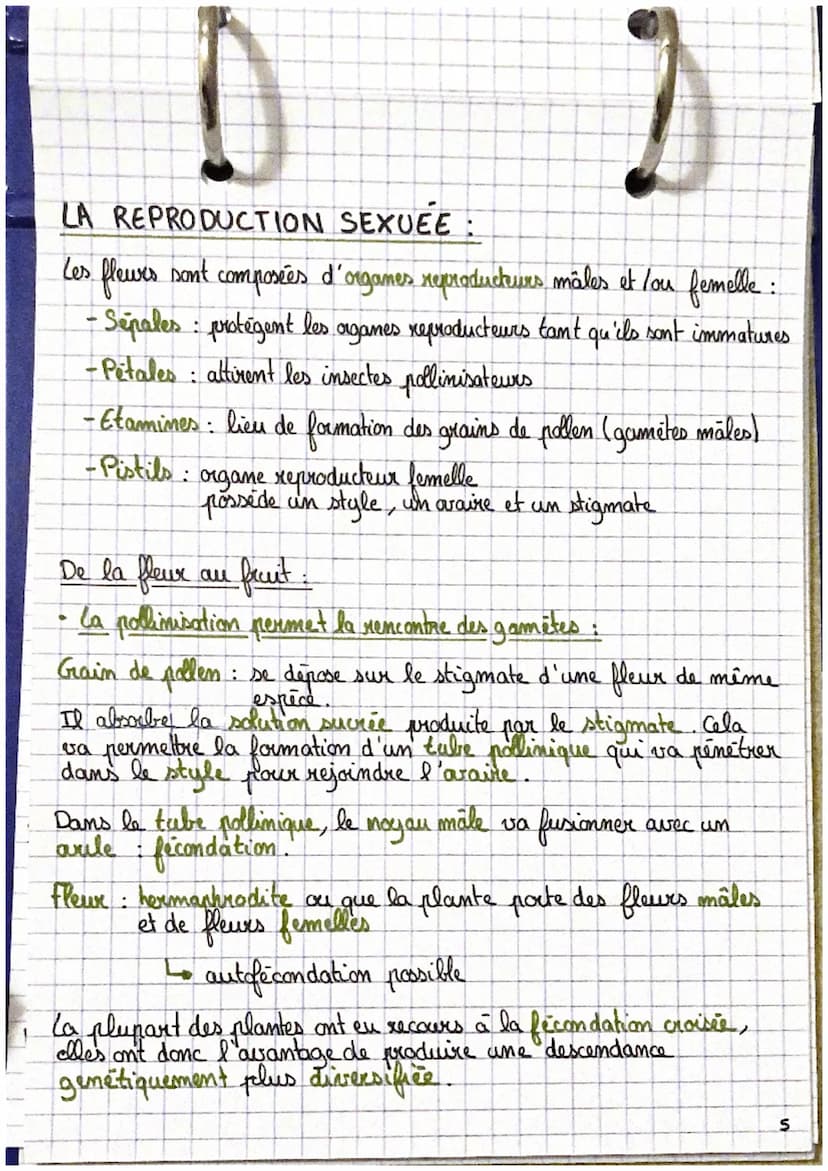 LA REPRODUCTION SEXUÉE :
Les fleurs sont composées d'organes reproducteurs mâles et/ou femelle :
- Sépales : protégent les organes reproducteurs tant qu'ils sont immatures
- Pétales : attirent les insectes pollinisateurs
- Etamines : lieu de formation des grains de pollen (gamètes mâles)
- Pistils : organe reproducteur femelle
possède un style, un ovaire et un stigmate
De la fleur au fruit :
• La pollinisation permet la rencontre des gamètes :
Grain de pollen : se dépose sur le stigmate d'une fleur de même
espèce.
Il absorbe la solution sucrée produite par le stigmate. Cela
va permettre la formation d'un tube pollinique qui va pénétrer
dans le style pour rejoindre l'ovaire.
Dans le tube pollinique, le noyau mâle va fusionner avec un
ovule : fécondation.
Fleur : hermaphrodite ou que la plante porte des fleurs mâles
et de fleurs femelles
↳ autofécondation possible
La plupart des plantes ont eu recours à la fécondation croisée,
elles ont donc l'avantage de produire une descendance
génétiquement plus diversifiée.
5